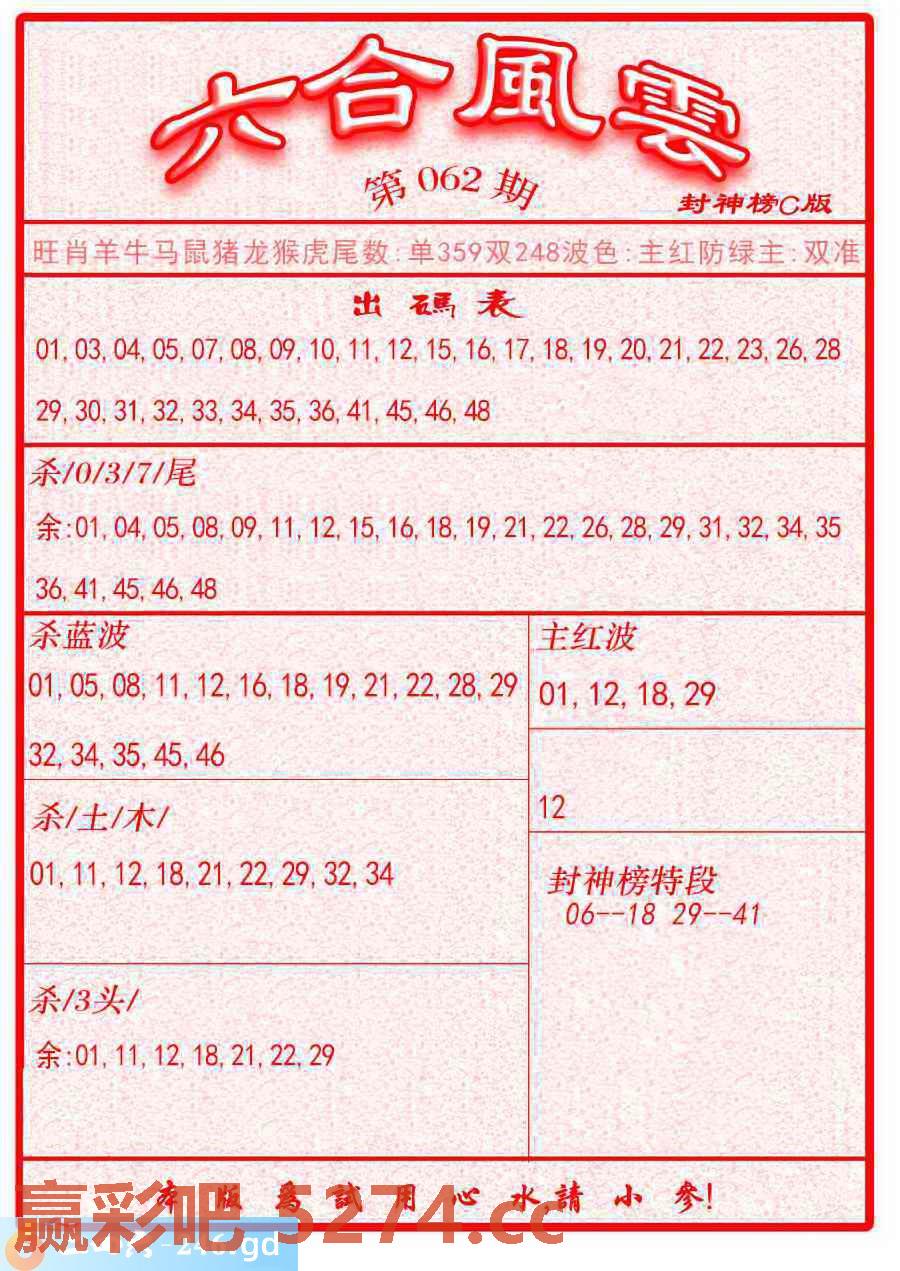 六合風雲
第062期
封神榜C版
旺肖羊牛马鼠猪龙猴虎尾数:单359双248波色:主红防绿主:双准
出碼表
01,03,04,05,07,08,09,10,11,12,15,16,17,18,19,20,21,22,23,26,28
29,30,31,32,33,34,35,36,41,45,46,48
杀/0/3/7/尾
余:01,04,05,08,09,11,12,15,16,18,19,21,22,26,28,29,31,32,34,35
36,41,45,46,48
杀蓝波
01,05,08,11,12,16,18,19,21,22,28,29
32,34,35,45,46
主红波
01,12,18,29
12
杀/土/木/
01,11,12,18,21,22,29,32,34
封神榜特段
06--18 29--41
杀/3头/
余:01,11,12,18,21,22,29
本版為試用心水請小參!
赢彩吧 5274.cc